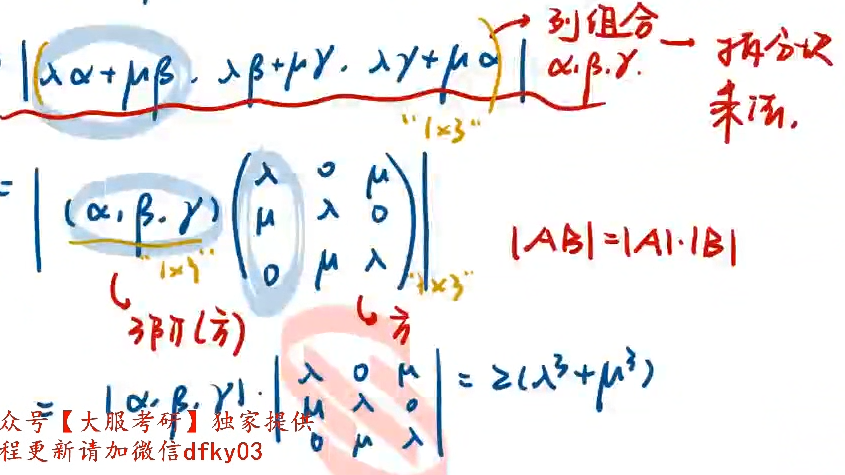 |(λα+μβ, λβ+μγ, λγ+μα)| → 列组合
α, β, γ. → 拆分块
乘法.
"1×3"
= |(α, β, γ) (λ 0 μ
μ λ 0
0 μ λ)|
|AB|=|A|·|B|
"1×3" "3×3"
3阶(方) 方
= |α, β, γ| · |λ 0 μ
μ λ 0
0 μ λ| = 2(λ³+μ³)
众号【大服考研】独家提供
程更新请加微信dfky03